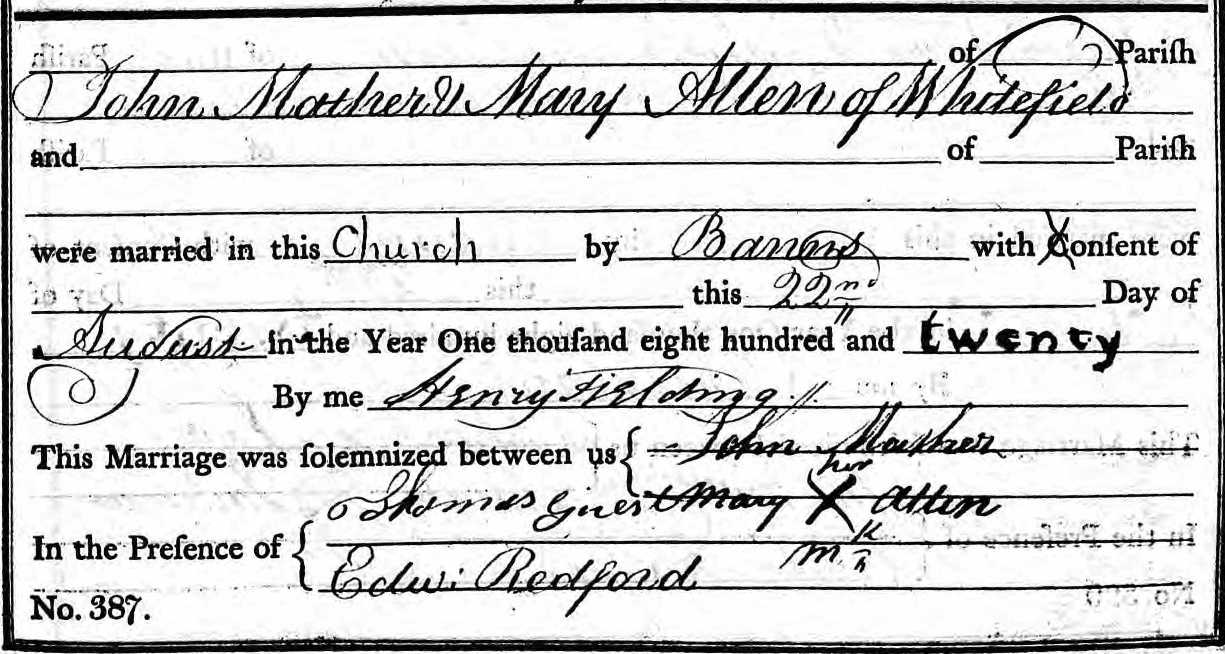 of Pariſh
John Mather & Mary Allen of Whitefield
and of Pariſh
were married in this Church by Banns with Conſent of
this 22nd Day of
August in the Year One thouſand eight hundred and twenty
By me Henry Fielding
This Marriage was ſolemnized between us { John Mather
her
Thomas Guest Mary X Allen
In the Preſence of { mk
Edwi Redford
No. 387.